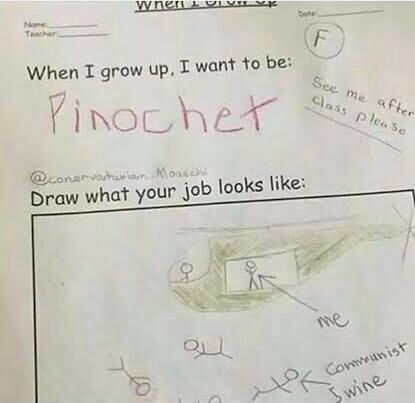 When I Grow Up
Name:
Teacher:
Date:
F
When I grow up, I want to be:
See me after
class please
Pinochet
@conservatarian.Moaschi
Draw what your job looks like:
me
Communist
Swine